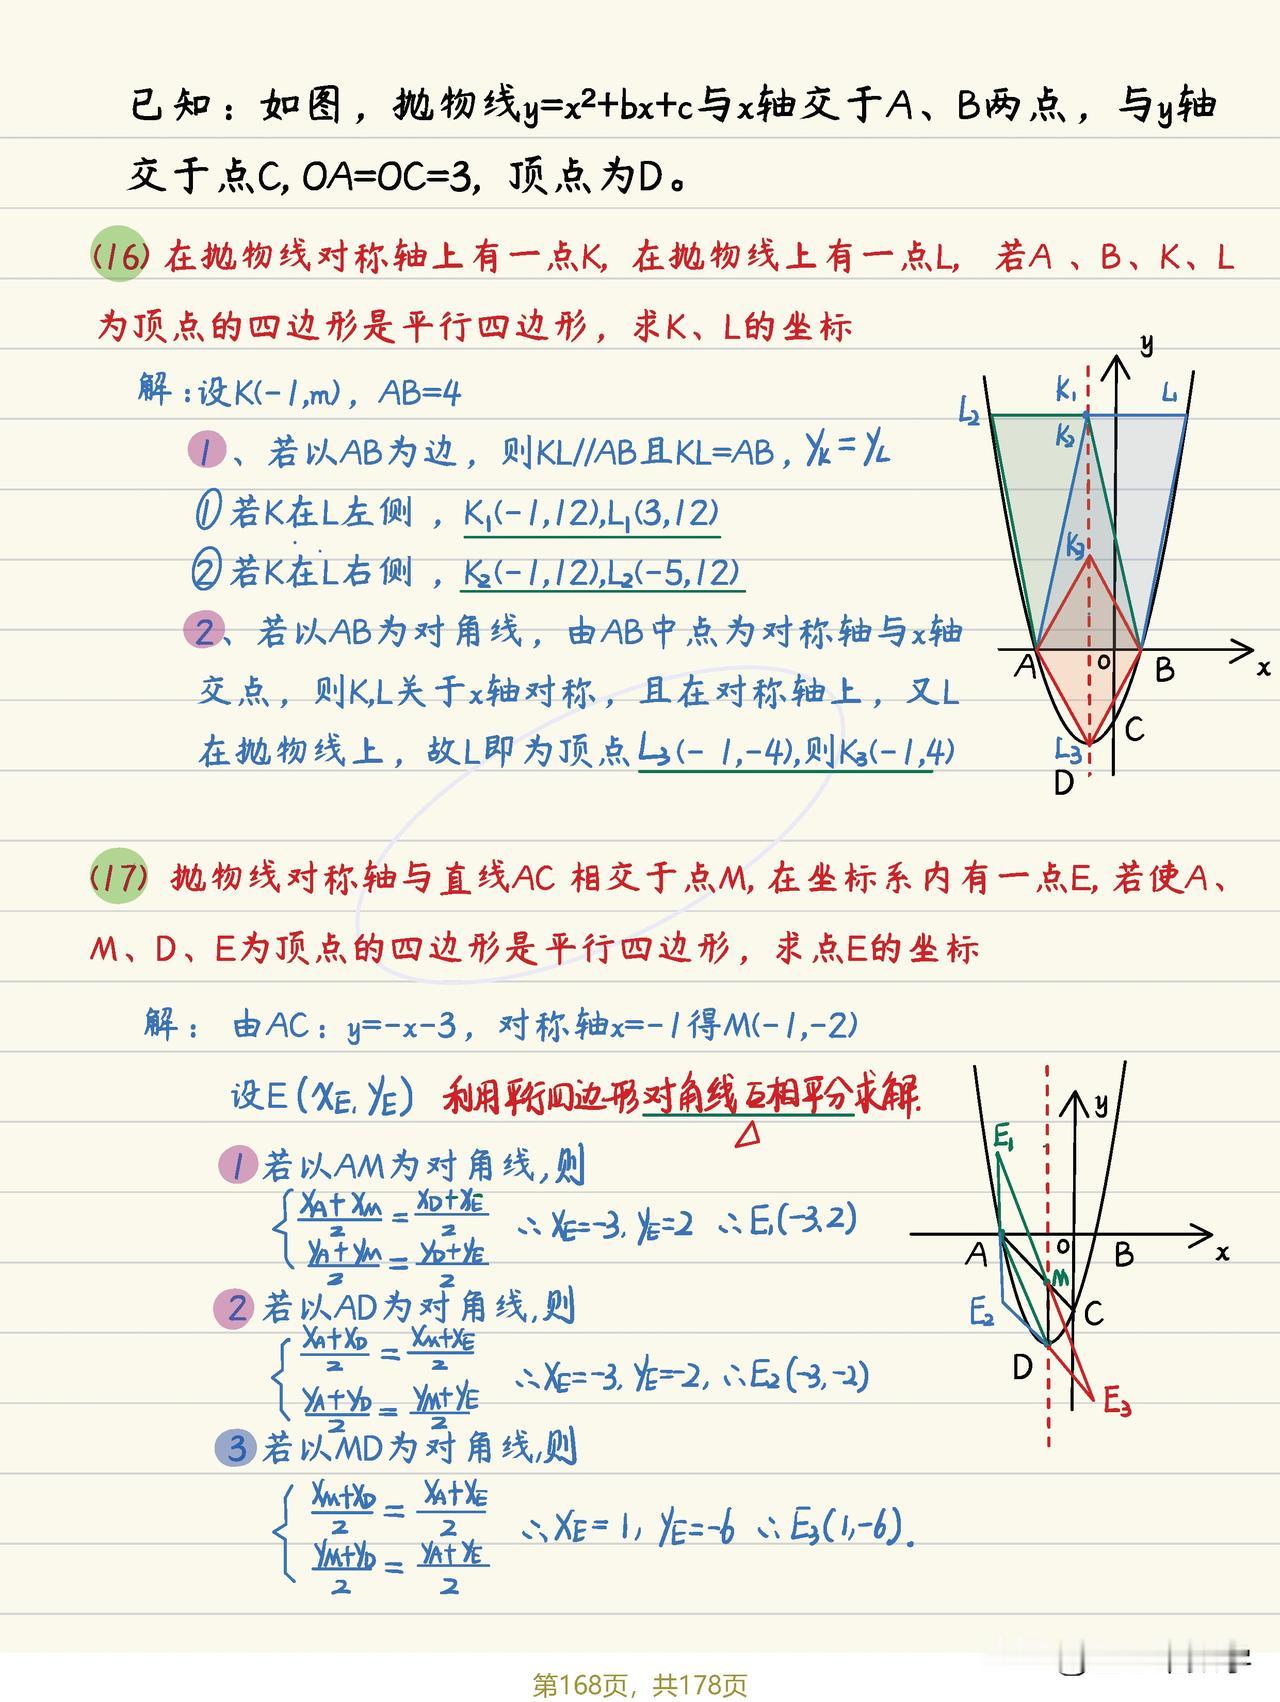 已知：如图，抛物线y=x²+bx+c与x轴交于A、B两点，与y轴
交于点C, OA=OC=3, 顶点为D。
(16) 在抛物线对称轴上有一点K, 在抛物线上有一点L, 若A、B、K、L
为顶点的四边形是平行四边形，求K、L的坐标
解：设K(-1,m)，AB=4
1、若以AB为边，则KL//AB且KL=AB, yₖ=y_L
①若K在L左侧，K₁(-1,12),L₁(3,12)
②若K在L右侧，K₂(-1,12),L₂(-5,12)
2、若以AB为对角线，由AB中点为对称轴与x轴
交点，则K,L关于x轴对称，且在对称轴上，又L
在抛物线上，故L即为顶点L₃(-1,-4),则K₃(-1,4)
y
K₁
L₁
L₂
K₂
K₃
A
O
B
x
C
L₃
D
(17) 抛物线对称轴与直线AC 相交于点M, 在坐标系内有一点E, 若使A、
M、D、E为顶点的四边形是平行四边形，求点E的坐标
解： 由AC：y=-x-3，对称轴x=-1得M(-1,-2)
设E(x_E, y_E) 利用平行四边形对角线互相平分求解.
1 若以AM为对角线,则
{ (x_A+x_M)/2 = (x_D+x_E)/2 ∴x_E=-3, y_E=2 ∴E₁(-3,2)
(y_A+y_M)/2 = (y_D+y_E)/2
2 若以AD为对角线,则
{ (x_A+x_D)/2 = (x_M+x_E)/2 ∴x_E=-3, y_E=-2, ∴E₂(-3,-2)
(y_A+y_D)/2 = (y_M+y_E)/2
3 若以MD为对角线,则
{ (x_M+x_D)/2 = (x_A+x_E)/2 ∴x_E=1, y_E=-6 ∴E₃(1,-6).
(y_M+y_D)/2 = (y_A+y_E)/2
y
E₁
A
O
B
x
M
E₂
C
D
E₃
第168页，共178页